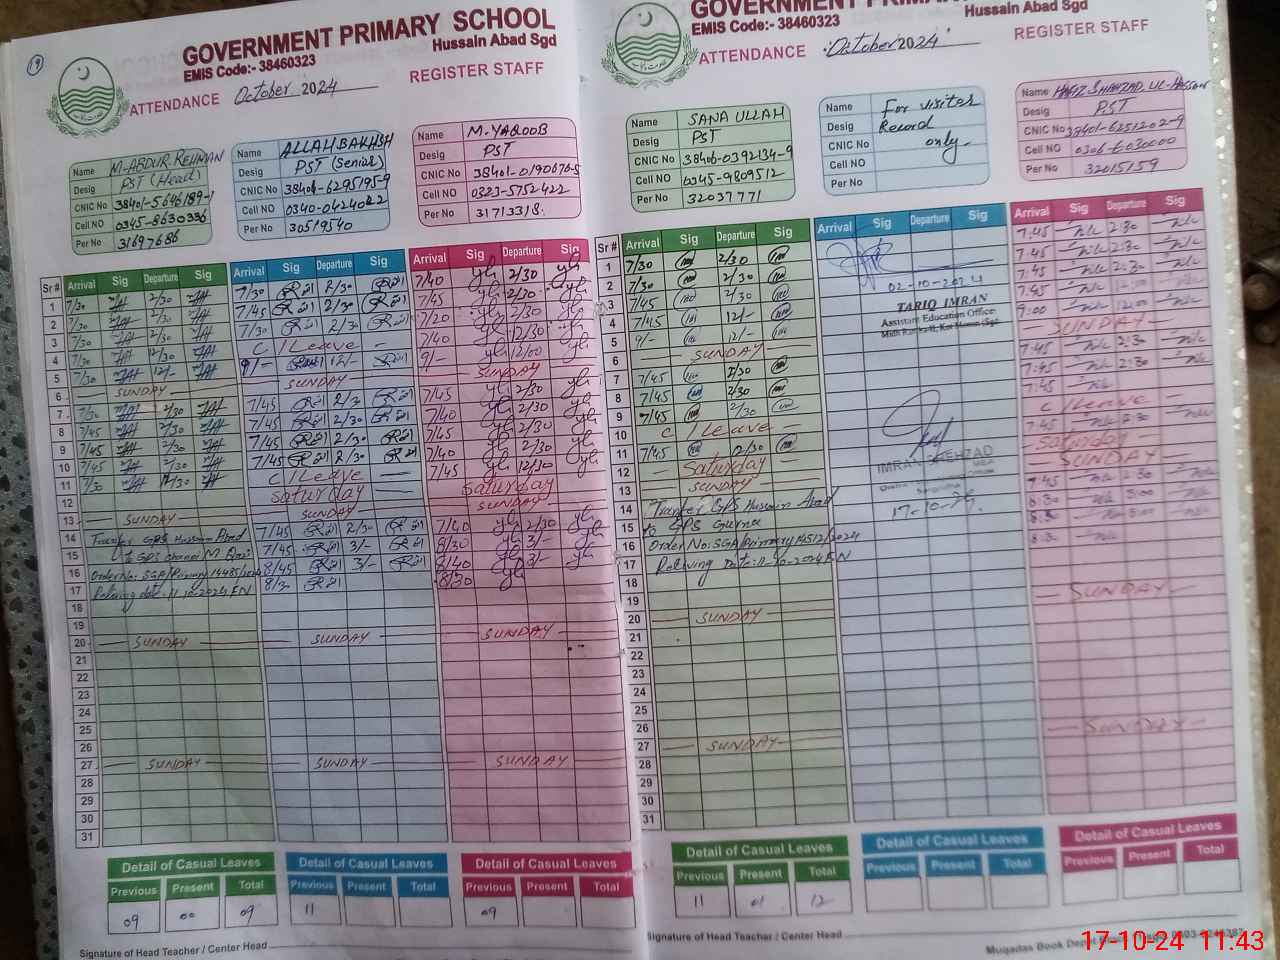 19
GOVERNMENT PRIMARY SCHOOL
Hussain Abad Sgd
EMIS Code:- 38460323
ATTENDANCE October 2024 REGISTER STAFF
Name M-ABDUR REHMAN
Desig PST (Head)
CNIC No 38401-5646189-1
Cell NO 0345-8630336
Per No 31697686
Name ALLAH BAKHSH
Desig PST (Senior)
CNIC No 38406-6295195-9
Cell NO 0340-0424022
Per No 30519540
Name M-YAQOOB
Desig PST
CNIC No 38401-0190670-5
Cell NO 0323-5752422
Per No 31713318
Sr # Arrival Sig Departure Sig Arrival Sig Departure Sig Arrival Sig Departure Sig
1 7/30 2/30 7/30 2/30 7/40 2/30
2 7/30 2/30 7/45 2/30 7/45 2/30
3 7/30 2/30 7/30 2/30 7/20 2/30
4 7/30 12/30 C/Leave 12/30
5 7/30 12/- 9/- 12/- 9/- 12/00
6 SUNDAY SUNDAY SUNDAY
7 7/30 2/30 7/45 2/30 7/45 2/30
8 7/45 2/30 7/45 2/30 7/40 2/30
9 7/45 2/30 7/45 2/30 7/45 2/30
10 7/45 2/30 7/45 2/30 7/40 2/30
11 7/30 C/Leave 7/45 12/30
12 Saturday Saturday
13 SUNDAY SUNDAY SUNDAY
14 Transfer GPS Hussain Abad 7/45 2/30 7/40 2/30
15 7/45 3/- 8/30 3/-
16 Order No: SGA/Primary 8/45 3/- 8/40 3/-
17 Reliving date: 11.10.2024 FN 8/3 8/30
18
19
20 SUNDAY SUNDAY SUNDAY
21
22
23
24
25
26
27 SUNDAY SUNDAY SUNDAY
28
29
30
31
Detail of Casual Leaves Detail of Casual Leaves Detail of Casual Leaves
Previous Present Total Previous Present Total Previous Present Total
09 00 09 11 09
Signature of Head Teacher / Center Head
GOVERNMENT
Hussain Abad Sgd
EMIS Code:- 38460323
ATTENDANCE October 2024 REGISTER STAFF
Name SANA ULLAH
Desig PST
CNIC No 38406-0392134-9
Cell NO 0345-9809512
Per No 32037771
Name For visitor
Desig Record
CNIC No only.
Cell NO
Per No
Name HAFIZ SHAHZAD UL-Hassan
Desig PST
CNIC No 38401-6251202-9
Cell NO 0306-6030000
Per No 32015159
Sr # Arrival Sig Departure Sig Arrival Sig Departure Sig Arrival Sig Departure Sig
1 7/30 2/30 7:45 2:30
2 7/30 2/30 02-10-2024 7:45 2:30
3 7/45 2/30 TARIQ IMRAN 7:45 2:30
4 7/45 12/- Assistant Education Officer 7:45 12:00
5 9/- 12/- 9:00 12:00
6 SUNDAY SUNDAY
7 7/45 2/30 7:45 2:30
8 7/45 2/30 7:45 2:30
9 7/45 2/30 7:45
10 C/Leave C/Leave
11 7/45 12/30 7:45 2:30
12 Saturday IMRAN SHEHZAD Saturday
13 SUNDAY SUNDAY
14 Transfer GPS Hussain Abad 17-10-24. 7:45 2:30
15 to GPS 8:30 3:00
16 Order No: SGA/Primary 8:30 3:00
17 Reliving Date: 11-10-2024 FN 8:30
18
19
20 SUNDAY SUNDAY
21
22
23
24
25
26
27 SUNDAY SUNDAY
28
29
30
31
Detail of Casual Leaves Detail of Casual Leaves Detail of Casual Leaves
Previous Present Total Previous Present Total Previous Present Total
11 01 12
Signature of Head Teacher / Center Head
Muqadas Book Depot
17-10-24 11.43